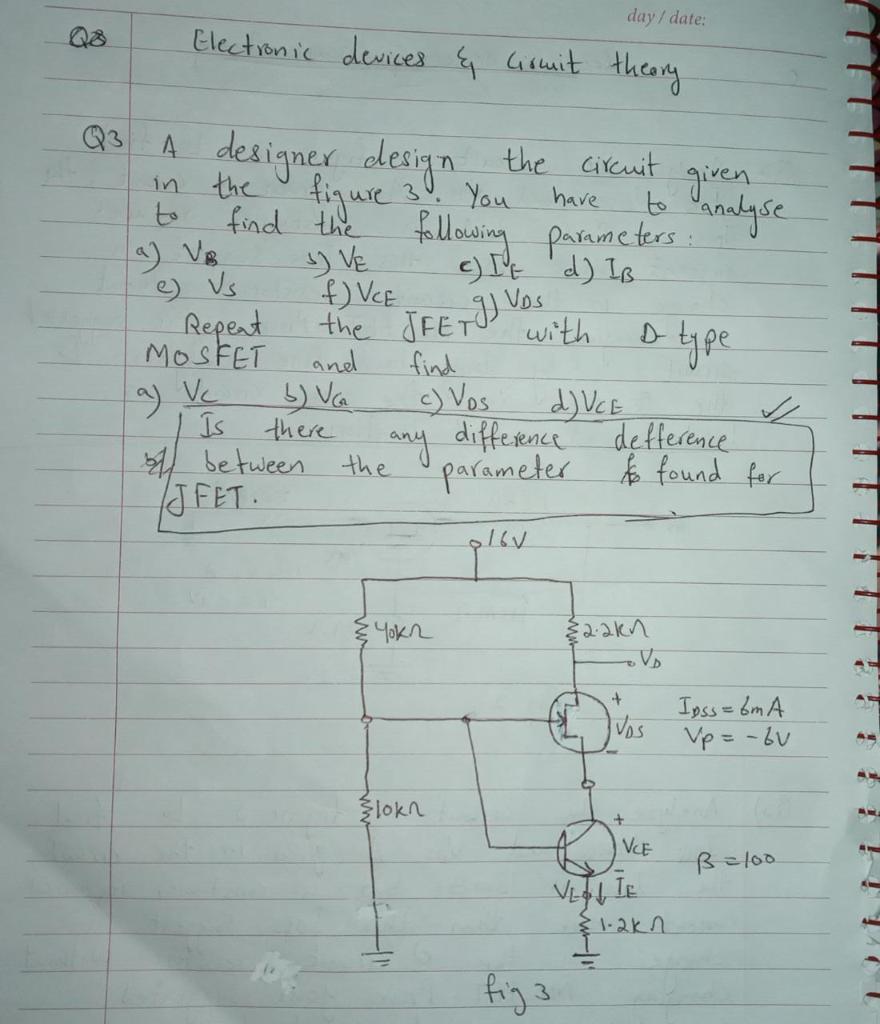 day / date:
Q8 Electronic devices & Circuit theory
Q3 A designer design the circuit given
in the figure 3. You have to analyse
to find the following parameters:
a) VB b) VE c) IE d) IB
e) Vs f) VCE g) VDS
Repeat the JFET with D type
MOSFET and find
a) VC b) VG c) VDS d) VCE
Is there any difference defference
between the parameter found for
JFET.
16V
40kΩ 2.2kΩ
VD
+
IDSS = 6mA
VDS
Vp = -6V
-
10kΩ
+
VCE
β = 100
-
VE IE
1.2kΩ
fig 3